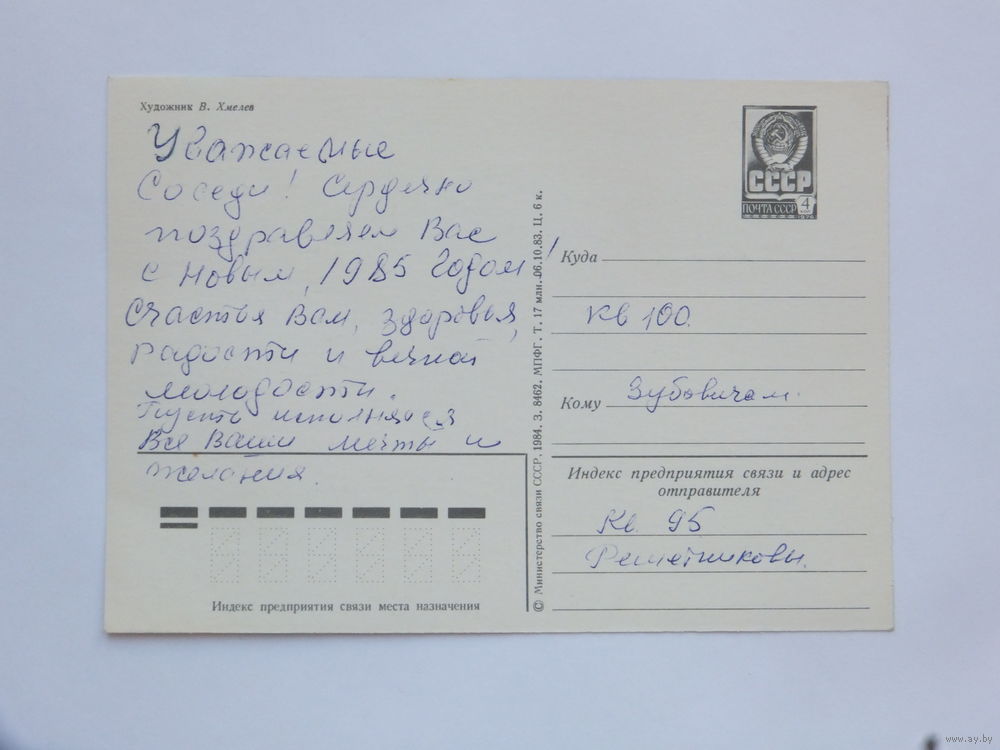 Художник В. Хмелев
Уважаемые
Соседи! Сердечно
поздравляем Вас
с Новым, 1985 Годом!
Счастья Вам, здоровья,
радости и вечной
молодости.
Пусть исполняется
Все Ваши мечты и
желания.
Индекс предприятия связи места назначения
© Министерство связи СССР, 1984. З. 8462. МПФГ. Т. 17 млн. 06.10.83. Ц. 6 к.
СССР
ПОЧТА СССР 4 коп
Куда
кв 100.
Кому Зубовичам.
Индекс предприятия связи и адрес
отправителя
Кв. 95
Решетниковы.
www.ay.by